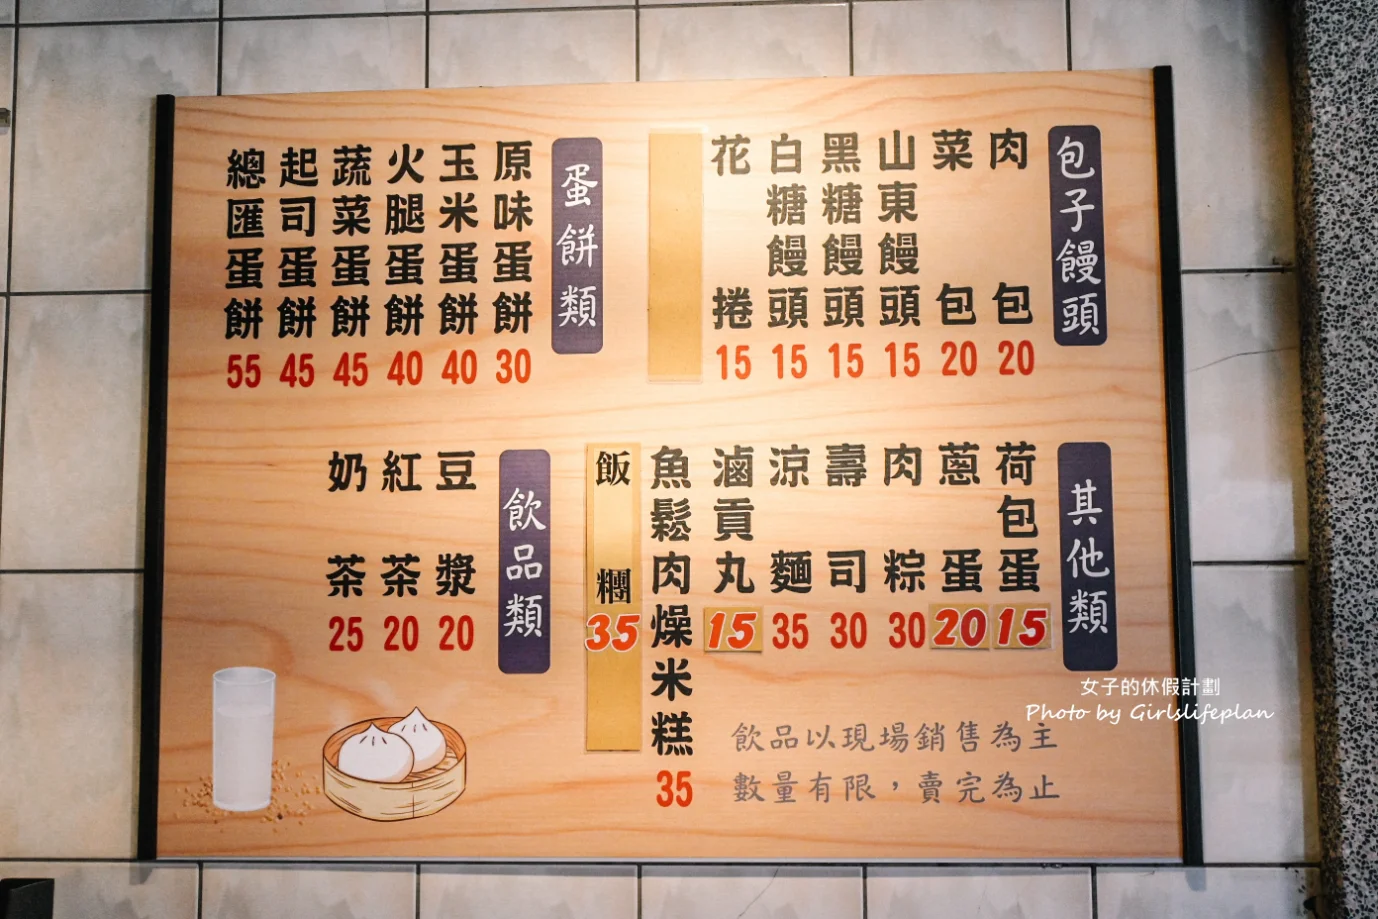 包子饅頭
肉包 20
菜包 20
山東饅頭 15
黑糖饅頭 15
白糖饅頭 15
花捲 15
蛋餅類
原味蛋餅 30
玉米蛋餅 40
火腿蛋餅 40
蔬菜蛋餅 45
起司蛋餅 45
總匯蛋餅 55
其他類
荷包蛋 15
蔥蛋 20
肉粽 30
壽司 30
涼麵 35
滷貢丸 15
魚鬆肉燥米糕 35
飯糰 35
飲品類
豆漿 20
紅茶 20
奶茶 25
飲品以現場銷售為主
數量有限，賣完為止
女子的休假計劃
Photo by Girlslifeplan